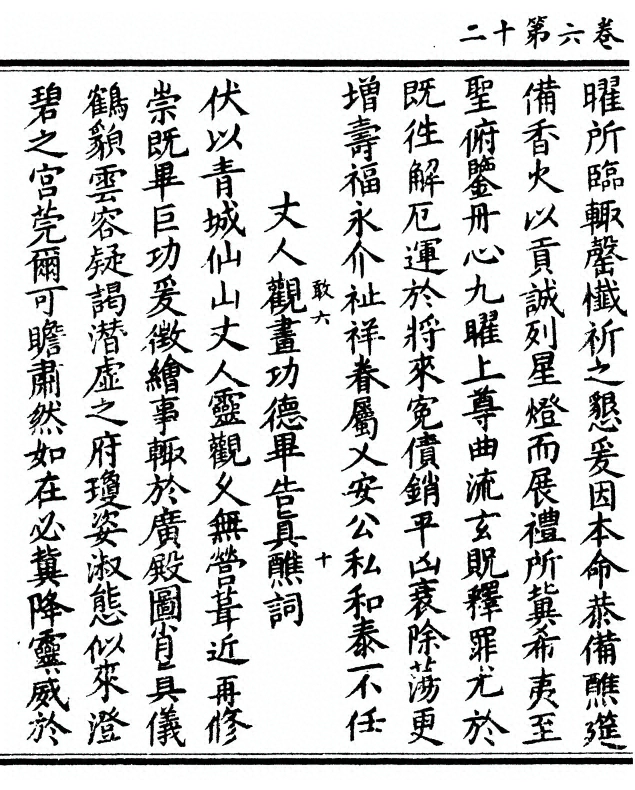 卷六第十二
曜所臨輙罄懺祈之懇爰因本命恭備醮筵
備香火以貢誠列星燈而展禮所兾希夷至
聖俯鑒丹心九曜上尊曲流玄貺釋罪尤於
既徃解厄運於將來寃債銷平凶衰除蕩更
增壽福永介祉祥眷屬乂安公私和泰不任
丈人觀畫功德畢告真醮詞
敢六
十
伏以青城仙山丈人靈觀久無營葺近再修
崇既畢巨功爰徵繪事輙於廣殿圖肖真儀
鶴貌雲容疑謁潜虛之府瓊姿淑態似來澄
碧之宮莞爾可瞻肅然如在必兾降靈威於